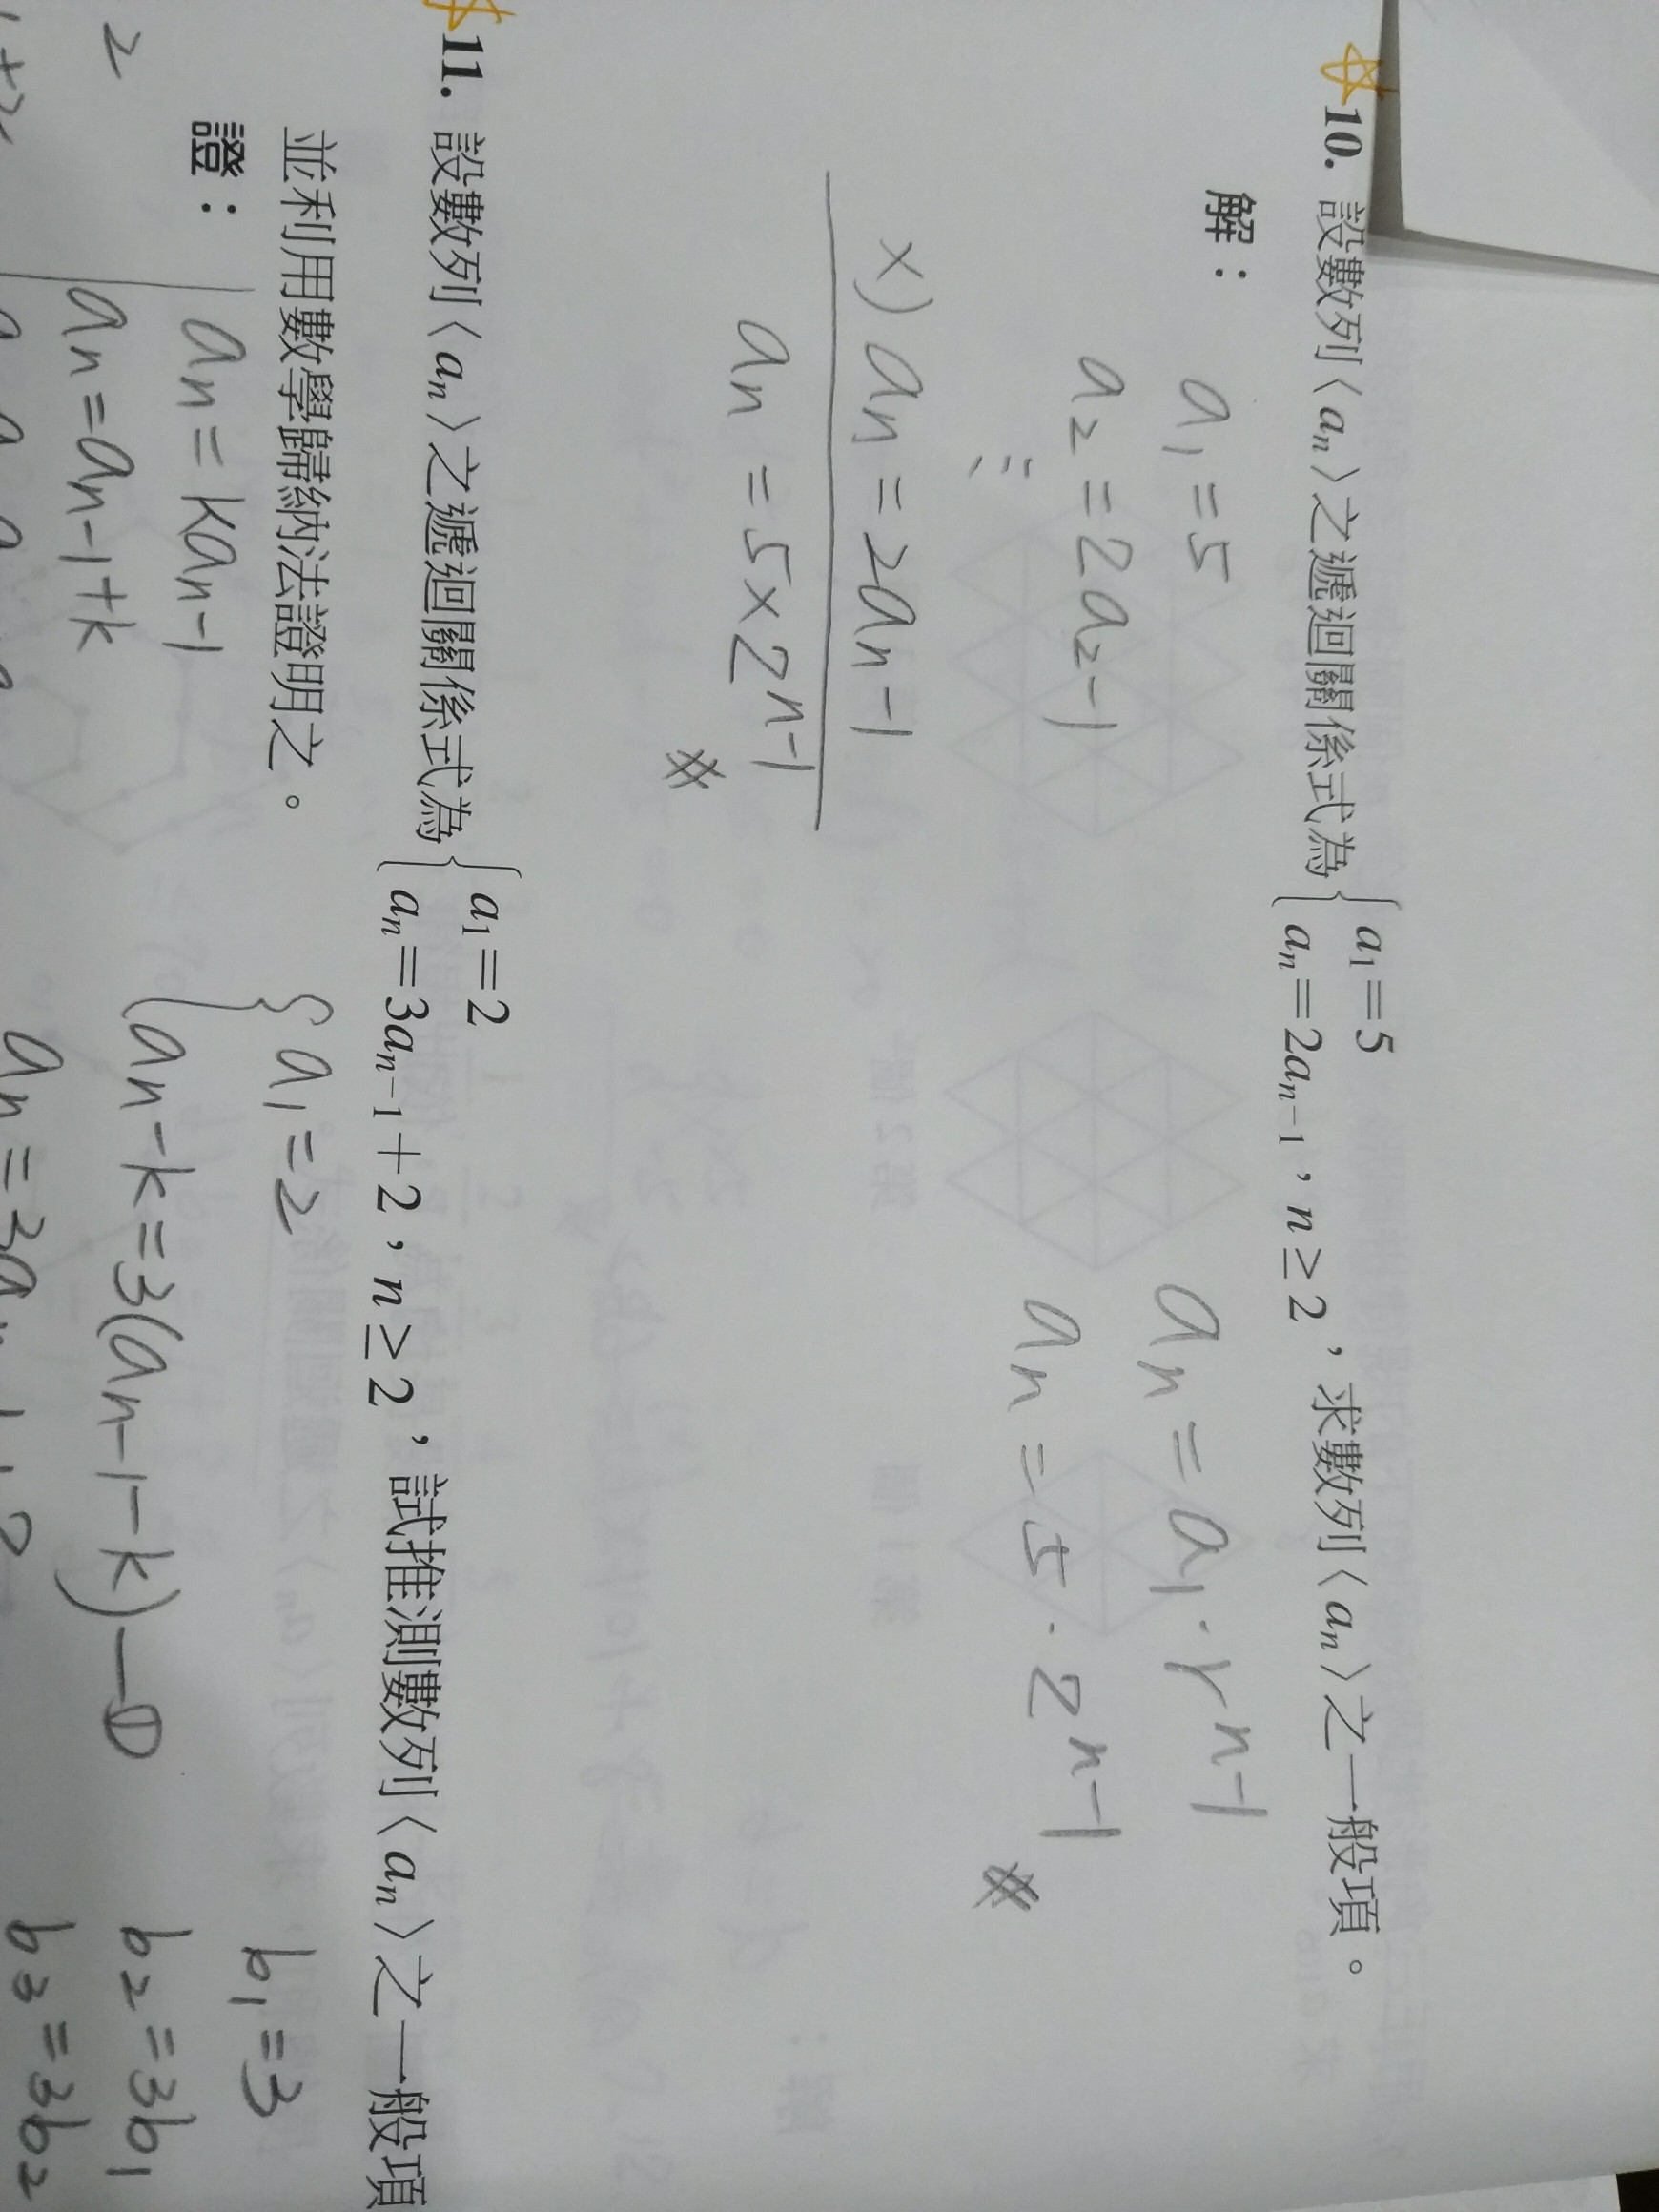 10. 設數列〈an〉之遞迴關係式為{a1=5
an=2an-1,n≥2,求數列〈an〉之一般項。
解:
a1=5
a2=2a2-1
⋮
x) an=2an-1
an=5x2n-1
※
an=a1·rn-1
an=5·2n-1
※
11. 設數列〈an〉之遞迴關係式為{a1=2
an=3an-1+2,n≥2,試推測數列〈an〉之一般項
並利用數學歸納法證明之。
證:
an=kan-1
an=an-1+k
{a1=2
an-k=3(an-1-k)—①
b1=3
b2=3b1
b3=3b2
2